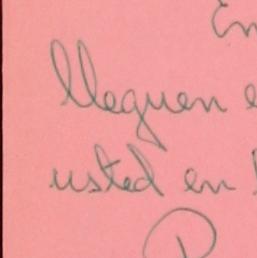 En
lleguen e
usted en